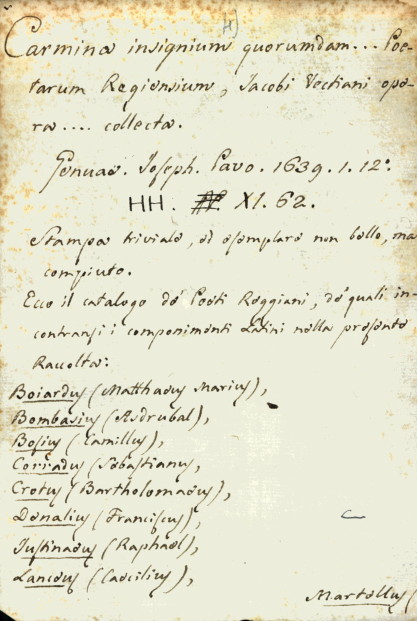 H)
Carmina insignium quorumdam... Poe-
tarum Regiensium, Jacobi Vectiani ope-
ra.... collecta.
Genuae. Joseph. Pavo. 1639. 1. 12°.
HH. XI. 62.
Stampa triviale, ed esemplare non bello, ma
compiuto.
Ecco il catalogo de' Poeti Reggiani, de' quali in-
contransi i componimenti Latini nella presente
Raccolta:
Boiardus (Matthaeus Marius),
Bombasius (Asdrubal),
Bosius (Camillus),
Corradus (Sebastianus,
Crotus (Bartholomaeus),
Denalius (Franciscus),
Justinaeus (Raphael),
Lanceus (Caecilius),
Martellus (